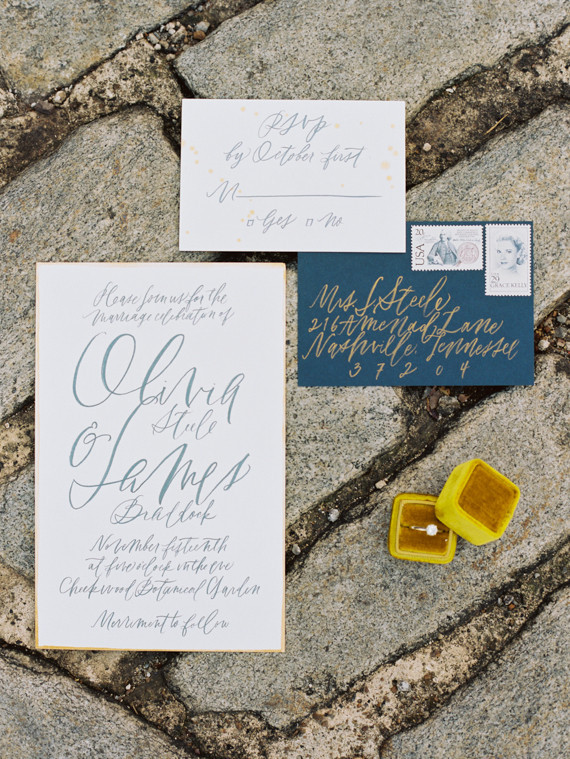 RSVP
by October first
M
Yes No
20
USA
29
GRACE KELLY
Mrs. S. Steele
Lane
Nashville, Tennessee
37204
Please join us for the
marriage celebration of
Olivia
Steele
&
James
Braddock
November fifteenth
at five o'clock in the eve
Cheekwood Botanical Garden
Merriment to follow